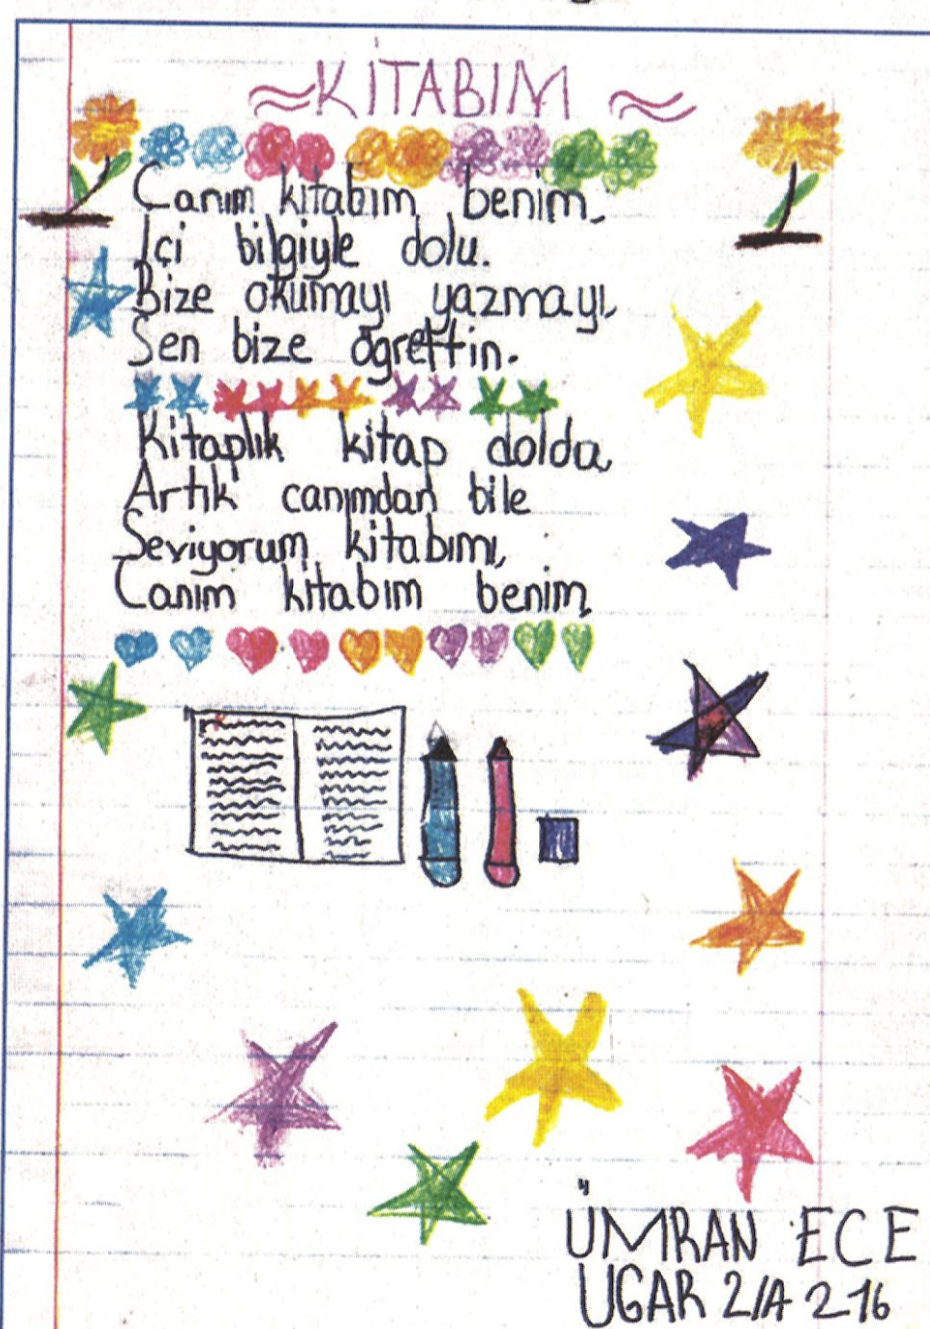 KİTABIM
Canım kitabım benim,
İçi bilgiyle dolu.
Bize okumayı yazmayı,
Sen bize öğrettin.
Kitaplık kitap dolda,
Artık canımdan bile
Seviyorum kitabımı,
Canım kitabım benim,
ÜMRAN ECE
UGAR 2/A 216